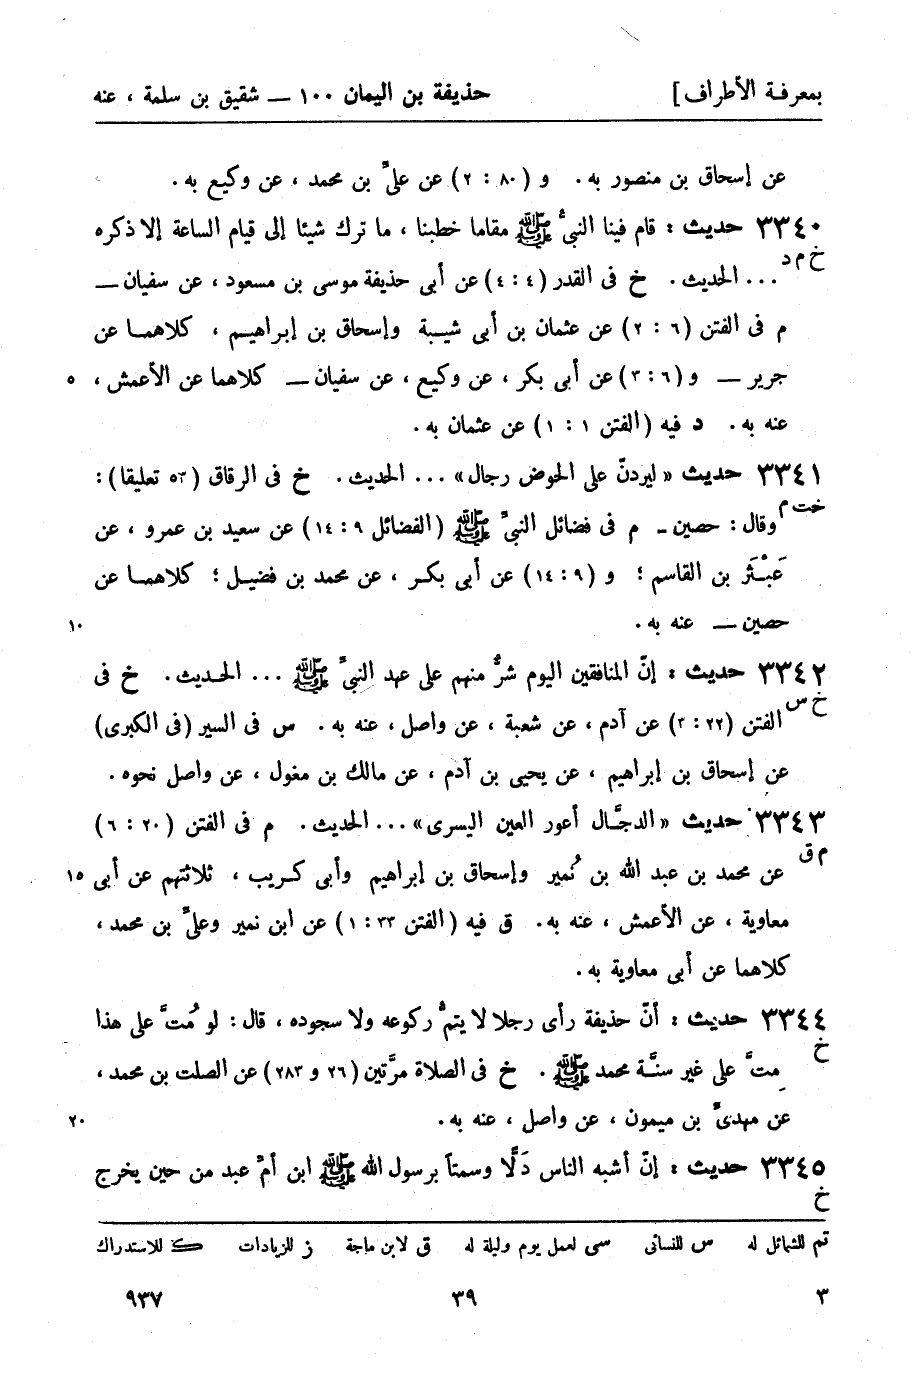 بمعرفة الأطراف] حذيفة بن اليمان ١٠٠ ــ شقيق بن سلمة ، عنه
عن إسحاق بن منصور به. و (٨٠ : ٢) عن علىّ بن محمد ، عن وكيع به.
٣٣٤٠ حديث : قام فينا النبىُّ ﷺ مقاما خطبنا ، ما ترك شيئا إلى قيام الساعة إلا ذكره
خ م د ... الحديث. خ فى القدر (٤ : ٤) عن أبى حذيفة موسى بن مسعود ، عن سفيان ــ
م فى الفتن (٦ : ٢) عن عثمان بن أبى شيبة وإسحاق بن إبراهيم ، كلاهما عن
جرير ــ و (٦ : ٣) عن أبى بكر ، عن وكيع ، عن سفيان ــ كلاهما عن الأعمش ، ٥
عنه به. د فيه (الفتن ١ : ١) عن عثمان به.
٣٣٤١ حديث « ليردنّ على الحوض رجال» ... الحديث. خ فى الرقاق (٥٣ تعليقا) :
خت م وقال : حصين ــ م فى فضائل النبىّ ﷺ (الفضائل ٩ : ١٤) عن سعيد بن عمرو ، عن
عَبْثَر بن القاسم ؛ و (٩ : ١٤) عن أبى بكر ، عن محمد بن فضيل ؛ كلاهما عن
حصين ــ عنه به. ١٠
٣٣٤٢ حديث : إنّ المنافقين اليوم شرٌّ منهم على عهد النبىّ ﷺ ... الحديث. خ فى
خ س الفتن (٢٢ : ٢) عن آدم ، عن شعبة ، عن واصل ، عنه به. س فى السير (فى الكبرى)
عن إسحاق بن إبراهيم ، عن يحيى بن آدم ، عن مالك بن مغول ، عن واصل نحوه.
٣٣٤٣ حديث « الدجَّال أعور العين اليسرى» ... الحديث. م فى الفتن (٢٠ : ٦)
م ق عن محمد بن عبد الله بن نُمير وإسحاق بن إبراهيم وأبى كريب ، ثلاثتهم عن أبى ١٥
معاوية ، عن الأعمش ، عنه به. ق فيه (الفتن ٣٣ : ١) عن ابن نمير وعلىّ بن محمد ،
كلاهما عن أبى معاوية به.
٣٣٤٤ حديث : أنّ حذيفة رأى رجلا لا يتمُّ ركوعه ولا سجوده ، قال : لو مُتَّ على هذا
خ مِتَّ على غير سنَّة محمد ﷺ. خ فى الصلاة مرَّتين (٢٦ و ٢٨٣) عن الصلت بن محمد ،
عن مهدىّ بن ميمون ، عن واصل ، عنه به. ٢٠
٣٣٤٥ حديث : إنّ أشبه الناس دَلًّا وسمتاً برسول الله ﷺ ابن أمّ عبد من حين يخرج
خ
تم للشمائل له س للنسائى سى لعمل يوم وليلة له ق لابن ماجة ز للزيادات ك للاستدراك
٣ ٣٩ ٩٣٧